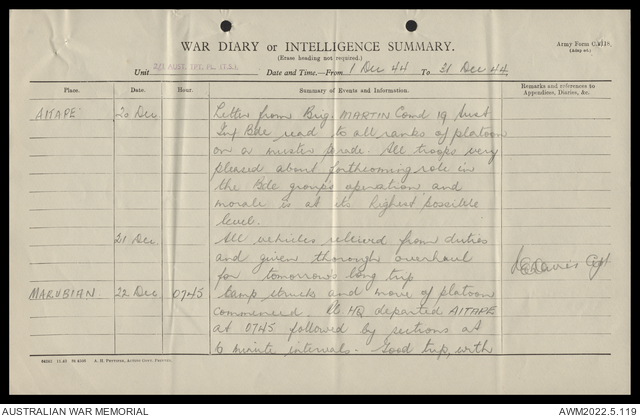 WAR DIARY OR INTELLIGENCE SUMMARY.
(Erase heading not required.)
Army Form
Unit 2/1 AUST. Date and Time.—From 1 Dec 44 To 31 Dec 44
Place. Date. Hour. Summary of Events and Information. Remarks and references to Appendices, Diaries, &c.
AITAPE 20 Dec Letter from Brig. MARTIN Comd 19 Aust
Inf Bde read to all ranks of platoon
on a muster parade. All troops very
pleased about forthcoming role in
the Bde groups operation and
morale is at its highest possible
level.
21 Dec. All vehicles relieved from duties
and given thorough overhaul
for tomorrows long trip
MARUBIAN. 22 Dec 0745 Camp struck and move of platoon
commenced. HQ departed AITAPE
at 0745 followed by sections at
6 minute intervals. Good trip, with
AUSTRALIAN WAR MEMORIAL
AWM2022.5.119